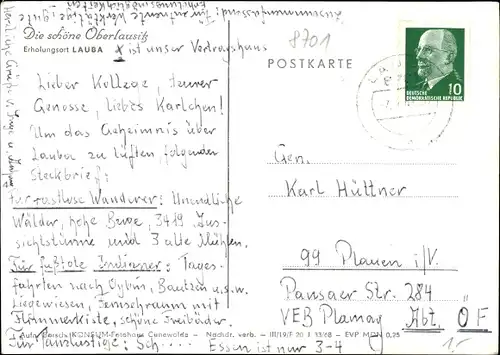 Zusammenfassend: Für
Die schöne Oberlausitz
Erholungsort LAUBA x ist unser Vertragshaus
8701
POSTKARTE
DEUTSCHE
DEMOKRATISCHE REPUBLIK 10
Lieber Kollege, teurer
Genosse, liebes Karlchen!
Um das Geheimnis über
Lauba zu lüften, folgender
Steckbrief:
Für rastlose Wanderer: Unendliche
Wälder, hohe Berge, 3419 Aus-
sichtstürme und 3 alte Mühlen.
Für fußtote Erdinner: Tages-
fahrten nach Oybin, Bautzen u.s.w.
Liegewiesen, Fernsehraum mit
Flimmerkiste, schöne Freibäder.
Für Tanzlustige: Sch.... Essen ist nur 3-4
Gen.
Karl Hüttner
99 Plauen i/V.
Pausaer Str. 284
VEB Plamag Abt. ÖF
KONSUM-Fotohaus Cunewalde - Nachdr. verb. - III/19/F 20 1 13/68 - EVP MDN 0,25
Herzliche Grüße v.